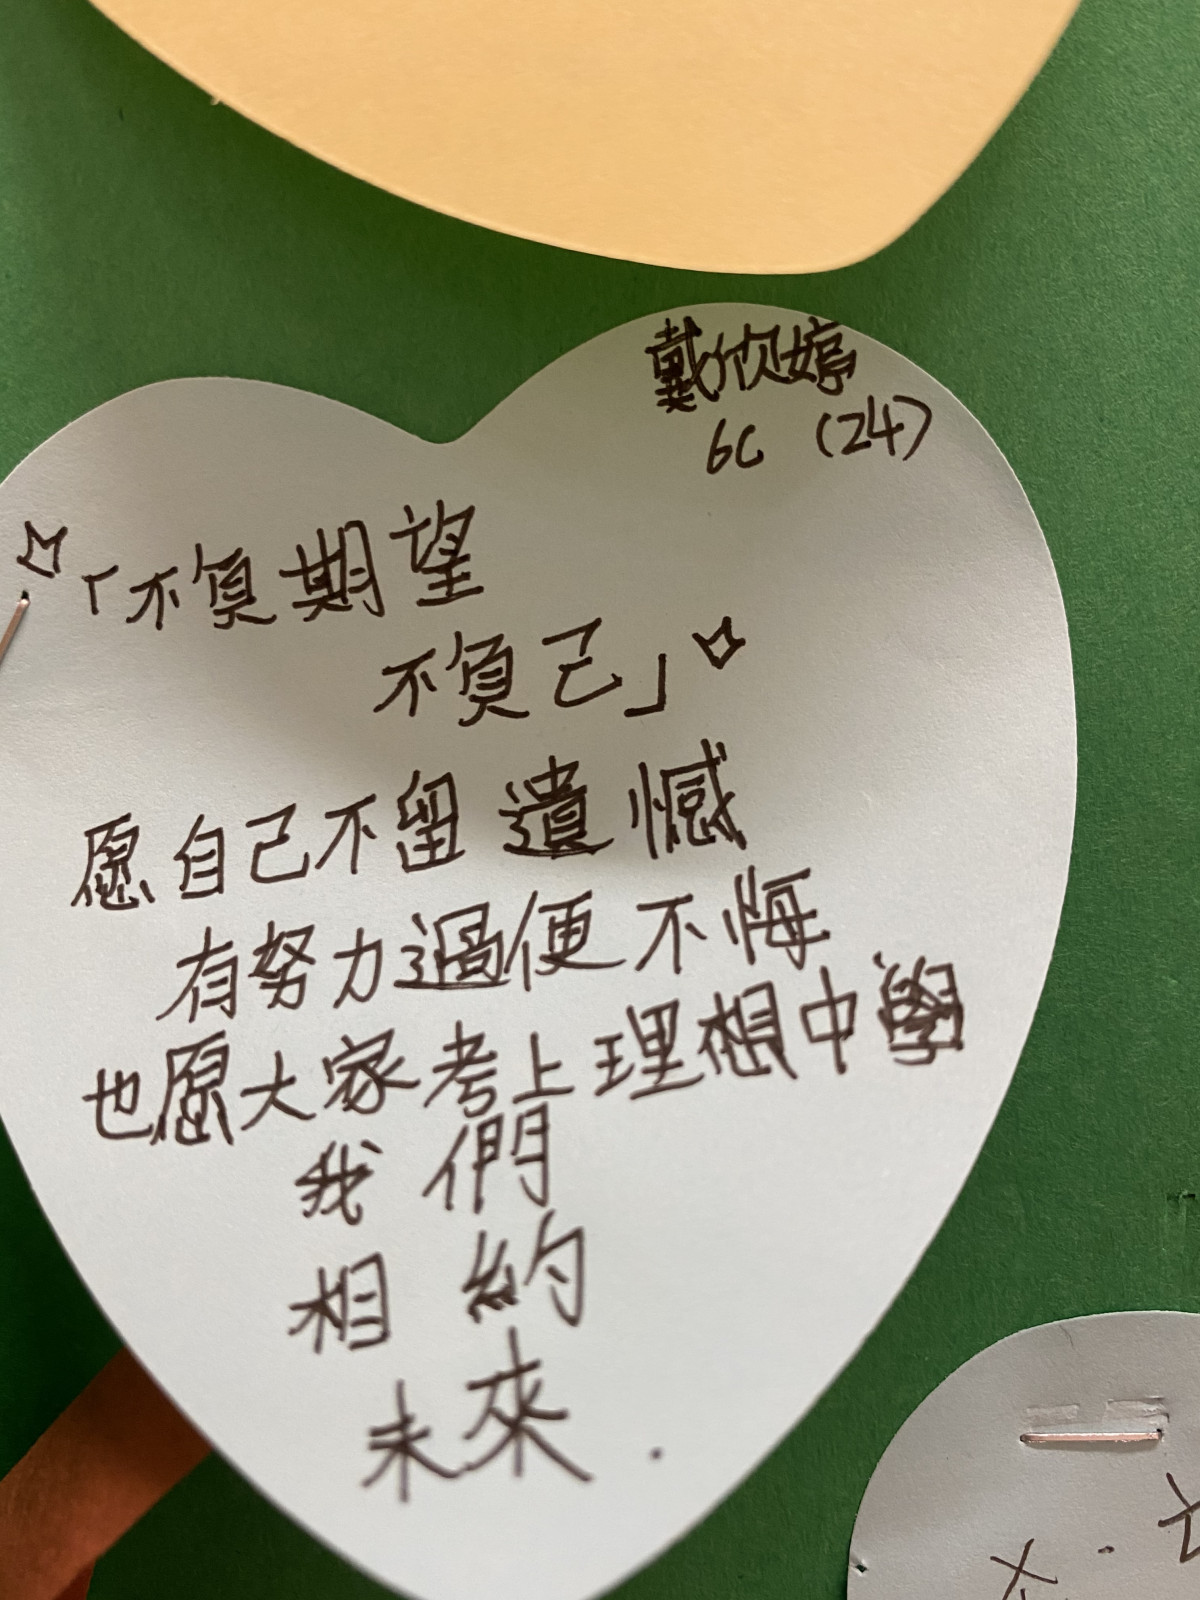 戴欣婷
6C (24)
「不負期望
不負己」
愿自己不留遺憾
有努力過便不悔
也愿大家考上理想中學
我們
相約
未來.